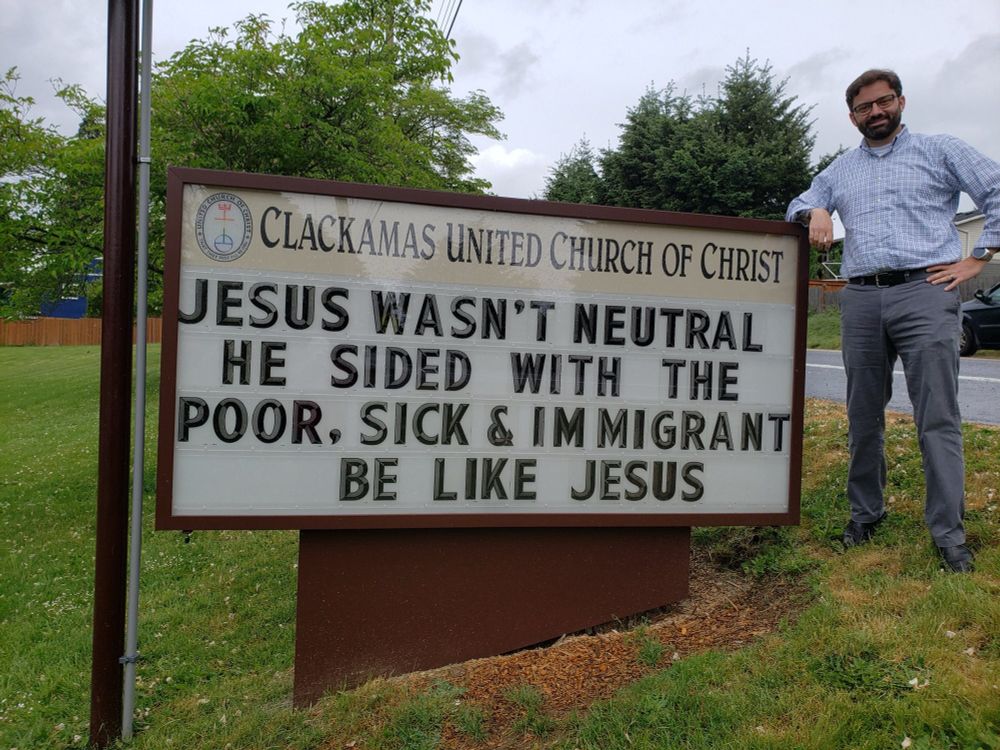 CLACKAMAS UNITED CHURCH OF CHRIST
JESUS WASN'T NEUTRAL
HE SIDED WITH THE
POOR, SICK & IMMIGRANT
BE LIKE JESUS